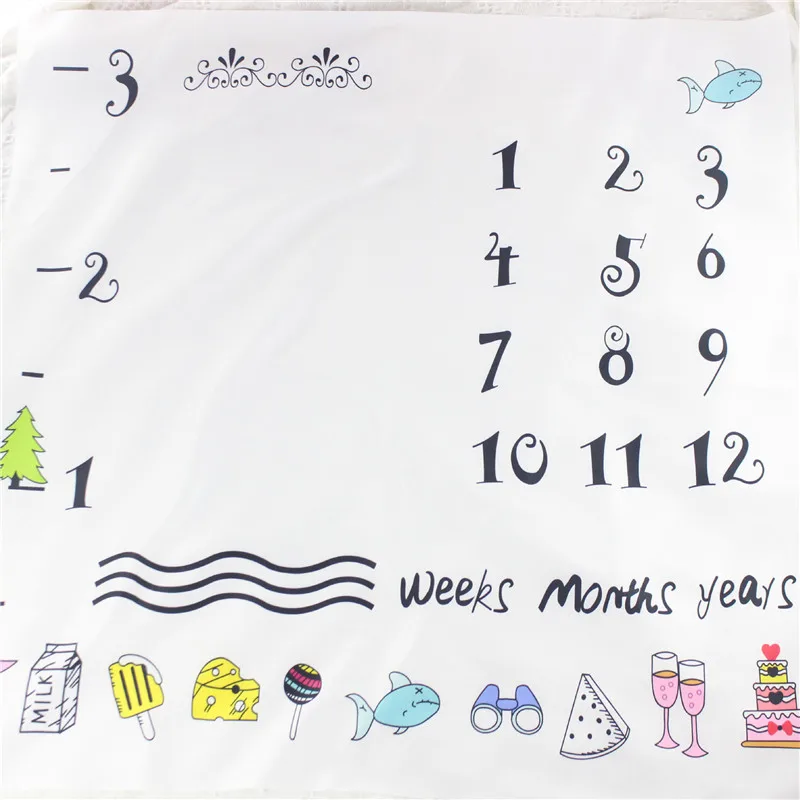 3
1 2 3
4 5 6
2
7 8 9
10 11 12
1
Weeks Months years
MILK